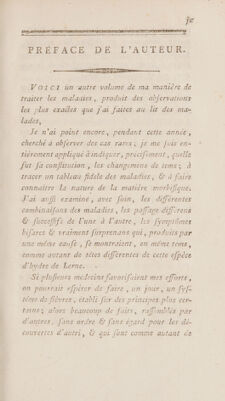 PRÉFACE DE L'AUTEUR.
VOICI un autre volume de ma manière de
traiter les maladies, produit des observations
les plus exactes que j'ai faites au lit des ma-
lades,
Je n'ai point encore, pendant cette année,
cherché à observer des cas rares; je me suis en-
tiérement appliqué à indiquer, précisément, quelle
fut sa constitution, les changemens de tems; à
tracer un tableau fidele des maladies, & à faire
connaître la nature de la matière morbifique.
J'ai aussi examiné, avec soin, les différentes
combinaisons des maladies, les passages différens
& successifs de l'une à l'autre, les symptômes
bisarres & vraiment surprenans qui, produits par
une même cause, se montraient, en même tems,
comme autant de têtes différentes de cette espèce
d'hydre de Lerne.
Si plusieurs médecins favorisaient mes efforts,
on pourrait espérer de faire, un jour, un sys-
tême de fièvres, établi sur des principes plus cer-
tains; alors beaucoup de faits, rassemblés par
d'autres, sans ordre & sans égard pour les dé-
couvertes d'autrui, & qui sont comme autant de